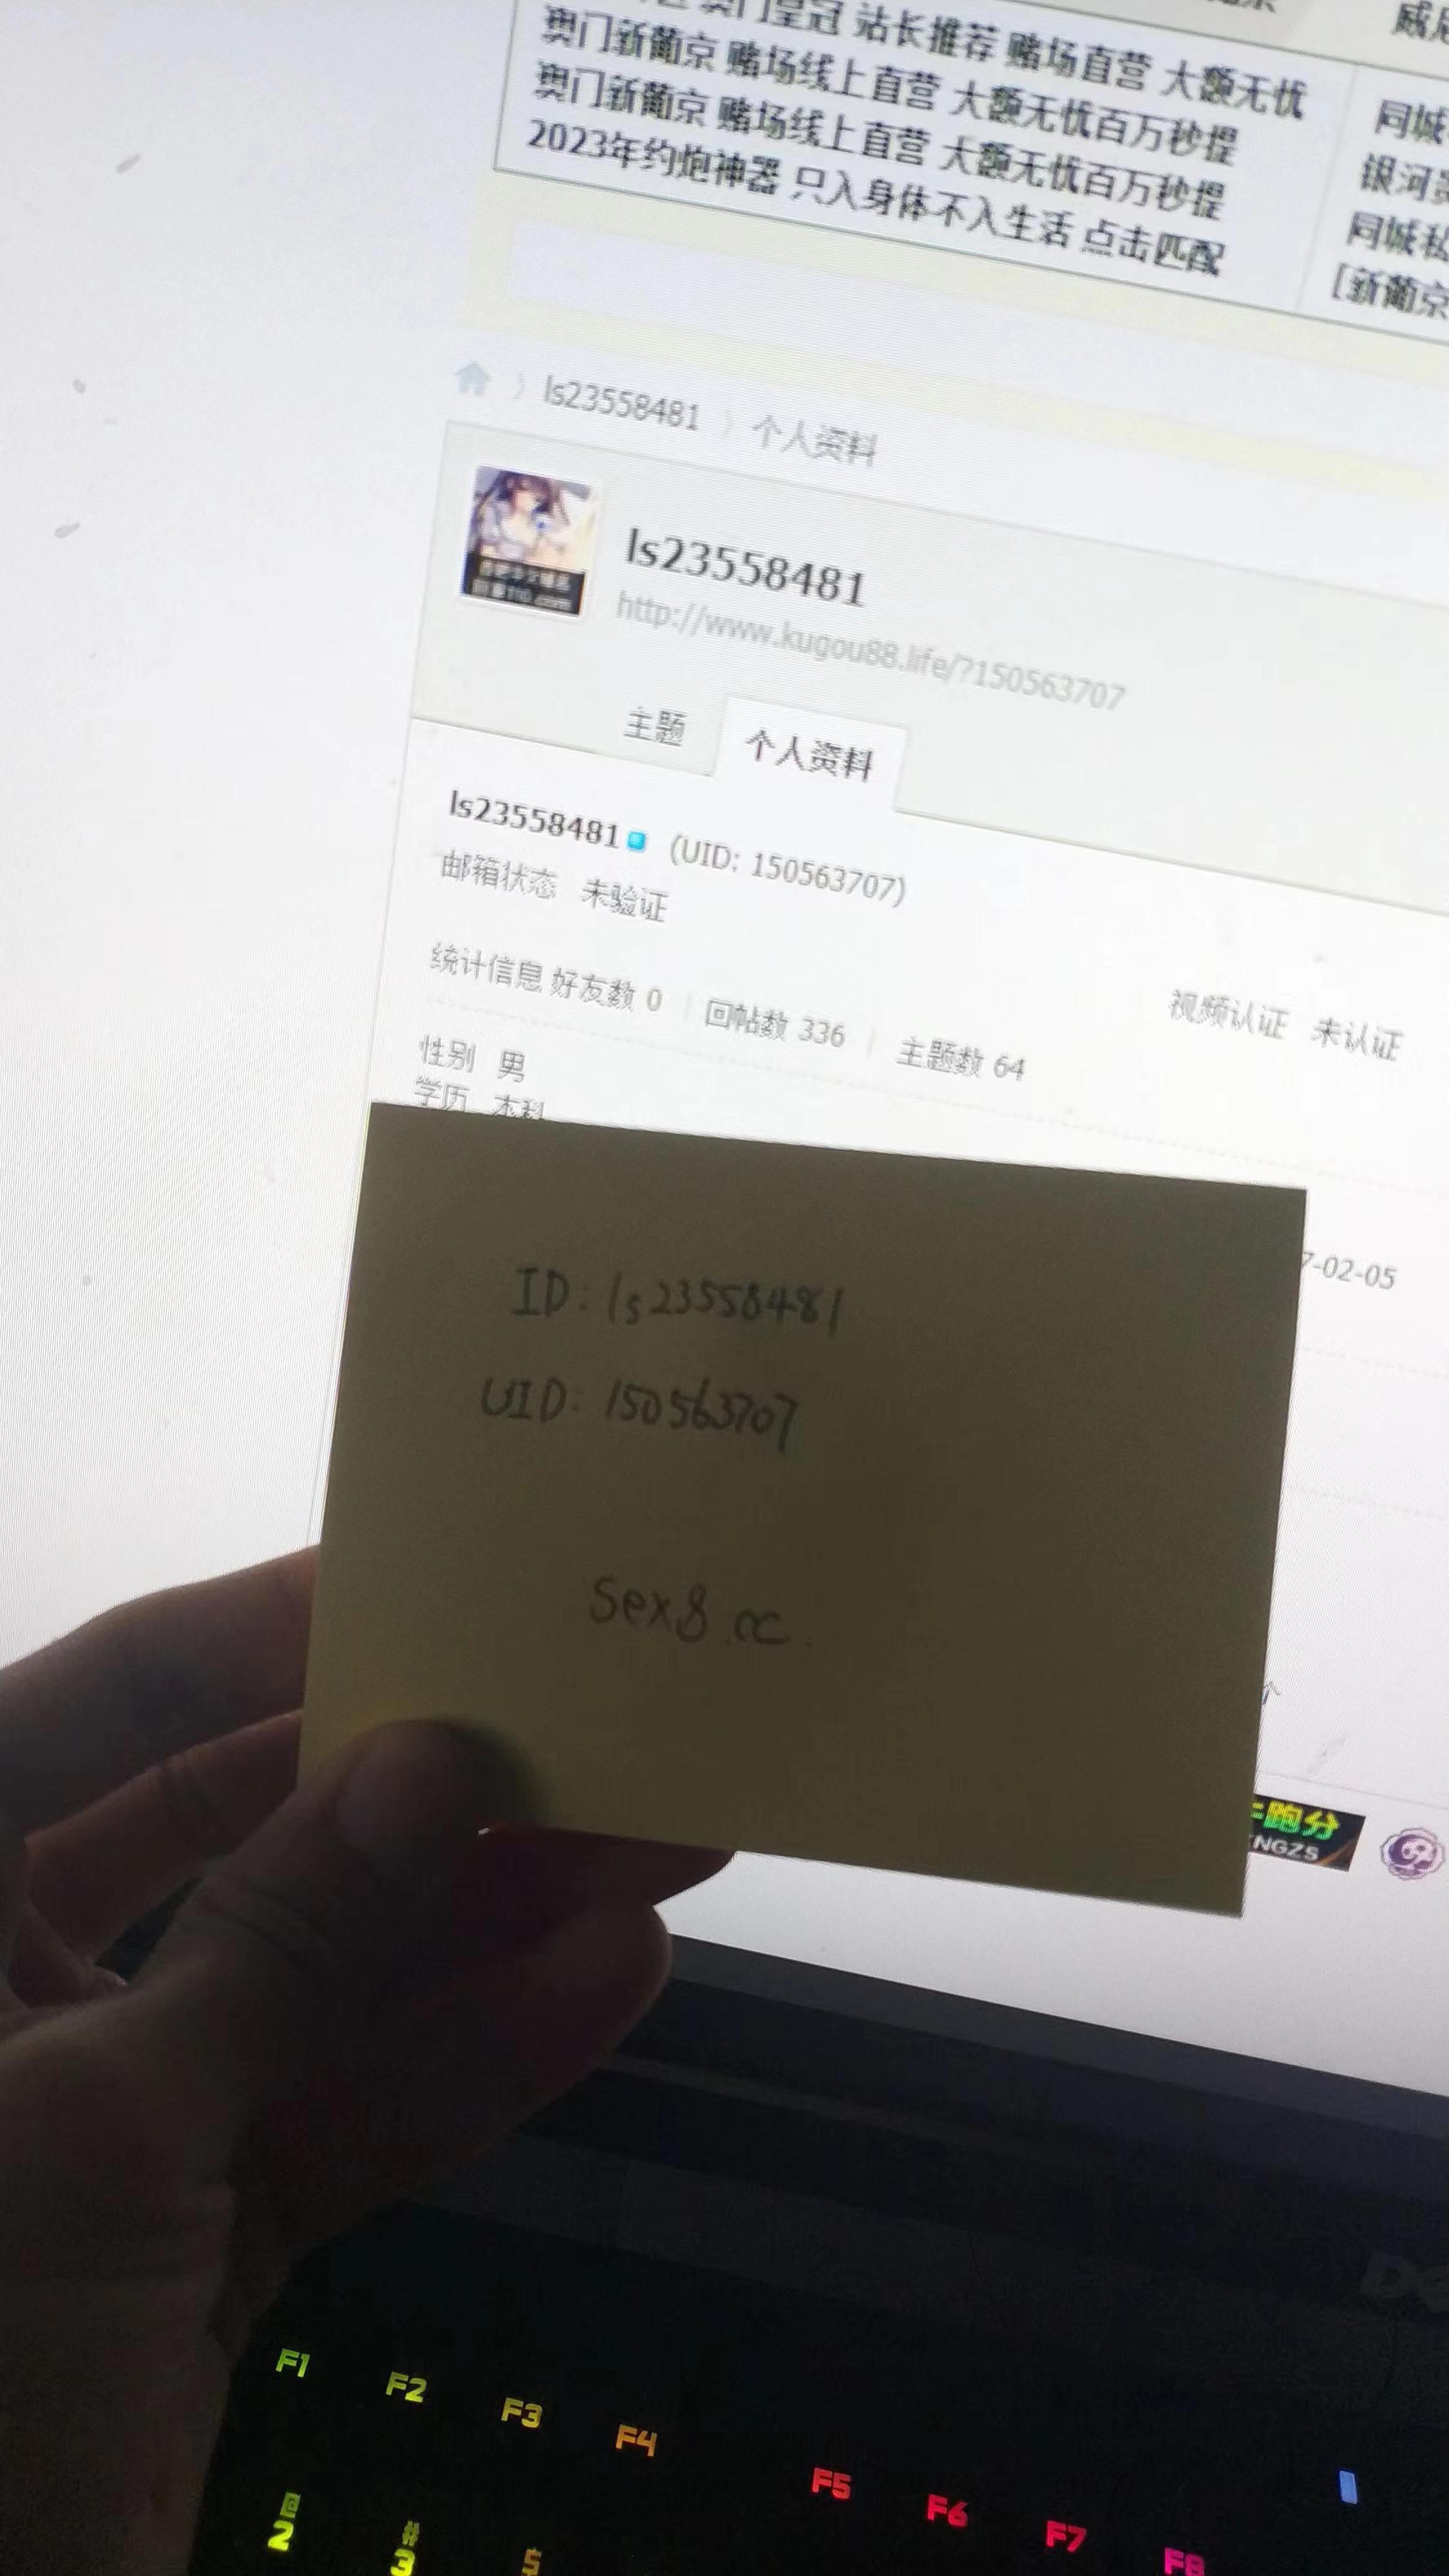 澳门皇冠 站长推荐 赌场直营 大额无忧
澳门新葡京 赌场线上直营 大额无忧百万秒提
澳门新葡京 赌场线上直营 大额无忧百万秒提
2023年约炮神器 只入身体不入生活 点击匹配
同城
银河
同城私
[新葡京
ls23558481 〉 个人资料
ls23558481
http://www.kugou88.life/?150563707
主题 个人资料
ls23558481 (UID: 150563707)
邮箱状态 未验证
视频认证 未认证
统计信息 好友数 0 | 回帖数 336 | 主题数 64
性别 男
学历 本科
7-02-05
ID: ls23558481
UID: 150563707
Sex8.cc.
跑分
NGZS
F1 F2 F3 F4 F5 F6 F7 F8
@ # $
2 3